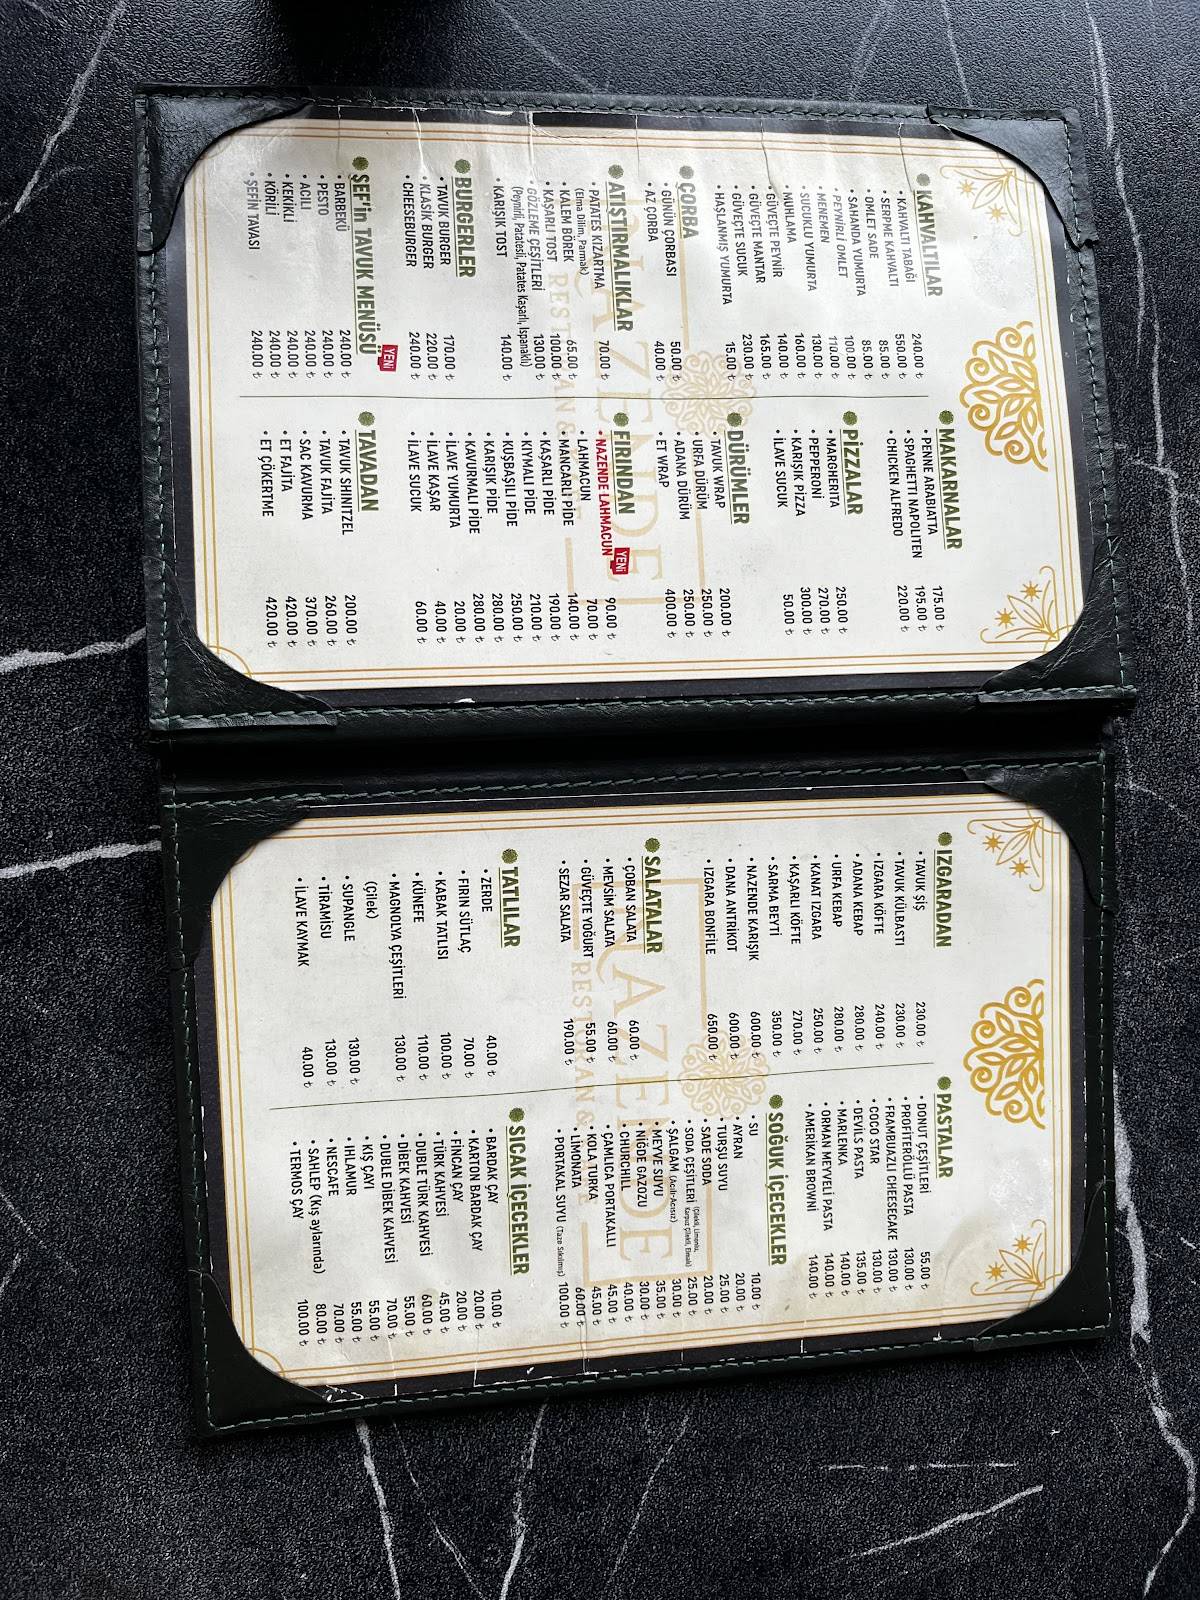 KAHVALTILAR
• KAHVALTI TABAĞI 240.00 ₺
• SERPME KAHVALTI 550.00 ₺
• OMLET SADE 85.00 ₺
• SAHANDA YUMURTA 85.00 ₺
• PEYNİRLİ OMLET 100.00 ₺
• MENEMEN 110.00 ₺
• SUCUKLU YUMURTA 130.00 ₺
• MUHLAMA 160.00 ₺
• GÜVEÇTE PEYNİR 140.00 ₺
• GÜVEÇTE MANTAR 165.00 ₺
• GÜVEÇTE SUCUK 230.00 ₺
• HAŞLANMIŞ YUMURTA 15.00 ₺
ÇORBA
• GÜNÜN ÇORBASI 50.00 ₺
• AZ ÇORBA 40.00 ₺
ATIŞTIRMALIKLAR
• PATATES KIZARTMA 70.00 ₺
(Elma Dilim, Parmak)
• KALEM BÖREK 65.00 ₺
• KAŞARLI TOST 100.00 ₺
• GÖZLEME ÇEŞİTLERİ 130.00 ₺
(Peynirli, Patatesli, Patates Kaşarlı, Ispanaklı)
• KARIŞIK TOST 140.00 ₺
BURGERLER
• TAVUK BURGER 170.00 ₺
• KLASİK BURGER 220.00 ₺
• CHEESEBURGER 240.00 ₺
ŞEF'in TAVUK MENÜSÜ YENİ
• BARBEKÜ 240.00 ₺
• PESTO 240.00 ₺
• ACILI 240.00 ₺
• KEKİKLİ 240.00 ₺
• KÖRİLİ 240.00 ₺
• ŞEFİN TAVASI 240.00 ₺
MAKARNALAR
• PENNE ARABIATTA 175.00 ₺
• SPAGHETTI NAPOLITEN 195.00 ₺
• CHICKEN ALFREDO 220.00 ₺
PİZZALAR
• MARGHERITA 250.00 ₺
• PEPPERONİ 270.00 ₺
• KARIŞIK PİZZA 300.00 ₺
• İLAVE SUCUK 50.00 ₺
DÜRÜMLER
• TAVUK WRAP 200.00 ₺
• URFA DÜRÜM 250.00 ₺
• ADANA DÜRÜM 250.00 ₺
• ET WRAP 400.00 ₺
FIRINDAN YENİ
• NAZENDE LAHMACUN 90.00 ₺
• LAHMACUN 70.00 ₺
• MANCARLI PİDE 140.00 ₺
• KAŞARLI PİDE 190.00 ₺
• KIYMALI PİDE 210.00 ₺
• KUŞBAŞILI PİDE 250.00 ₺
• KARIŞIK PİDE 280.00 ₺
• KAVURMALI PİDE 280.00 ₺
• İLAVE YUMURTA 20.00 ₺
• İLAVE KAŞAR 40.00 ₺
• İLAVE SUCUK 60.00 ₺
TAVADAN
• TAVUK SHNITZEL 200.00 ₺
• TAVUK FAJİTA 260.00 ₺
• SAC KAVURMA 370.00 ₺
• ET FAJİTA 420.00 ₺
• ET ÇÖKERTME 420.00 ₺
NAZENDE
RESTORAN &
IZGARADAN
• TAVUK ŞİŞ 230.00 ₺
• TAVUK KÜLBASTI 230.00 ₺
• IZGARA KÖFTE 240.00 ₺
• ADANA KEBAP 280.00 ₺
• URFA KEBAP 280.00 ₺
• KANAT IZGARA 250.00 ₺
• KAŞARLI KÖFTE 270.00 ₺
• SARMA BEYTİ 350.00 ₺
• NAZENDE KARIŞIK 600.00 ₺
• DANA ANTRİKOT 600.00 ₺
• IZGARA BONFİLE 650.00 ₺
SALATALAR
• ÇOBAN SALATA 60.00 ₺
• MEVSİM SALATA 60.00 ₺
• GÜVEÇTE YOĞURT 55.00 ₺
• SEZAR SALATA 190.00 ₺
TATLILAR
• ZERDE 40.00 ₺
• FIRIN SÜTLAÇ 70.00 ₺
• KABAK TATLISI 100.00 ₺
• KÜNEFE 110.00 ₺
• MAGNOLYA ÇEŞİTLERİ 130.00 ₺
(Çilek)
• SUPANGLE 130.00 ₺
• TİRAMİSU 130.00 ₺
• İLAVE KAYMAK 40.00 ₺
PASTALAR
• DONUT ÇEŞİTLERİ 55.00 ₺
• PROFİTEROLLÜ PASTA 130.00 ₺
• FRAMBUAZLI CHEESECAKE 130.00 ₺
• COCO STAR 130.00 ₺
• DEVİLS PASTA 135.00 ₺
• MARLENKA 140.00 ₺
• ORMAN MEYVELİ PASTA 140.00 ₺
• AMERİKAN BROWNİ 140.00 ₺
SOĞUK İÇECEKLER
• SU 10.00 ₺
• AYRAN 20.00 ₺
• TURŞU SUYU 25.00 ₺
• SADE SODA 20.00 ₺
• SODA ÇEŞİTLERİ (Çilekli, Limonlu, Karpuz Çilekli, Elmalı) 25.00 ₺
• ŞALGAM (Acılı-Acısız) 30.00 ₺
• MEYVE SUYU 35.00 ₺
• NİĞDE GAZOZU 30.00 ₺
• CHURCHILL 40.00 ₺
• ÇAMLICA PORTAKALLI 45.00 ₺
• KOLA TURKA 45.00 ₺
• LİMONATA 60.00 ₺
• PORTAKAL SUYU (Taze Sıkılmış) 100.00 ₺
SICAK İÇECEKLER
• BARDAK ÇAY 10.00 ₺
• KARTON BARDAK ÇAY 20.00 ₺
• FİNCAN ÇAY 20.00 ₺
• TÜRK KAHVESİ 45.00 ₺
• DUBLE TÜRK KAHVESİ 60.00 ₺
• DİBEK KAHVESİ 55.00 ₺
• DUBLE DİBEK KAHVESİ 70.00 ₺
• KIŞ ÇAYI 55.00 ₺
• IHLAMUR 55.00 ₺
• NESCAFE 70.00 ₺
• SAHLEP (Kış aylarında) 80.00 ₺
• TERMOS ÇAY 100.00 ₺
NAZENDE
RESTORAN &